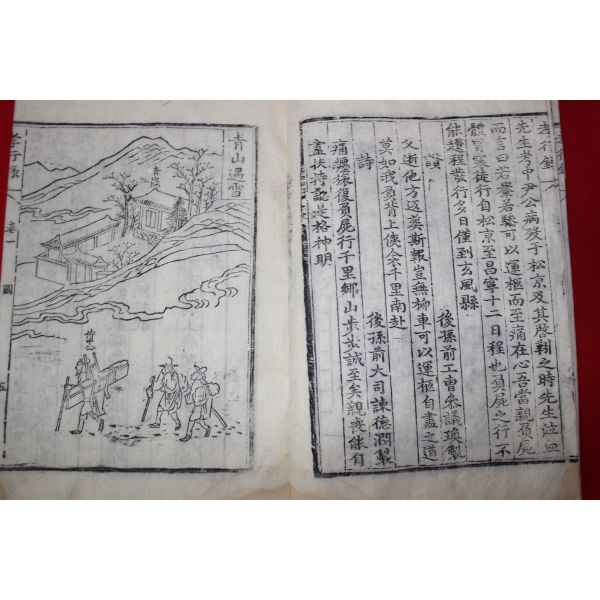 孝行錄
先生考中尹公病歿于松京及其啓靷之時先生泣血
而言曰若轝若騎可以運柩而至痛在心吾當親負屍
體冒寒徒行自松京至昌寧十二日程也負屍之行不
能趲程發行多日僅到玄風縣
讚 後孫前工曹參議瑗製
父逝他方返葬斯報豈無柳車可以運柩自盡之道
莫如我負背上俠衾千里南赴
詩 後孫前大司諫德潤製
痛纏旅復負屍行千里鄉山步步誠至矣親喪能自
盡扶持認是格神明
青山遇雪
孝行錄 卷一 圖 五